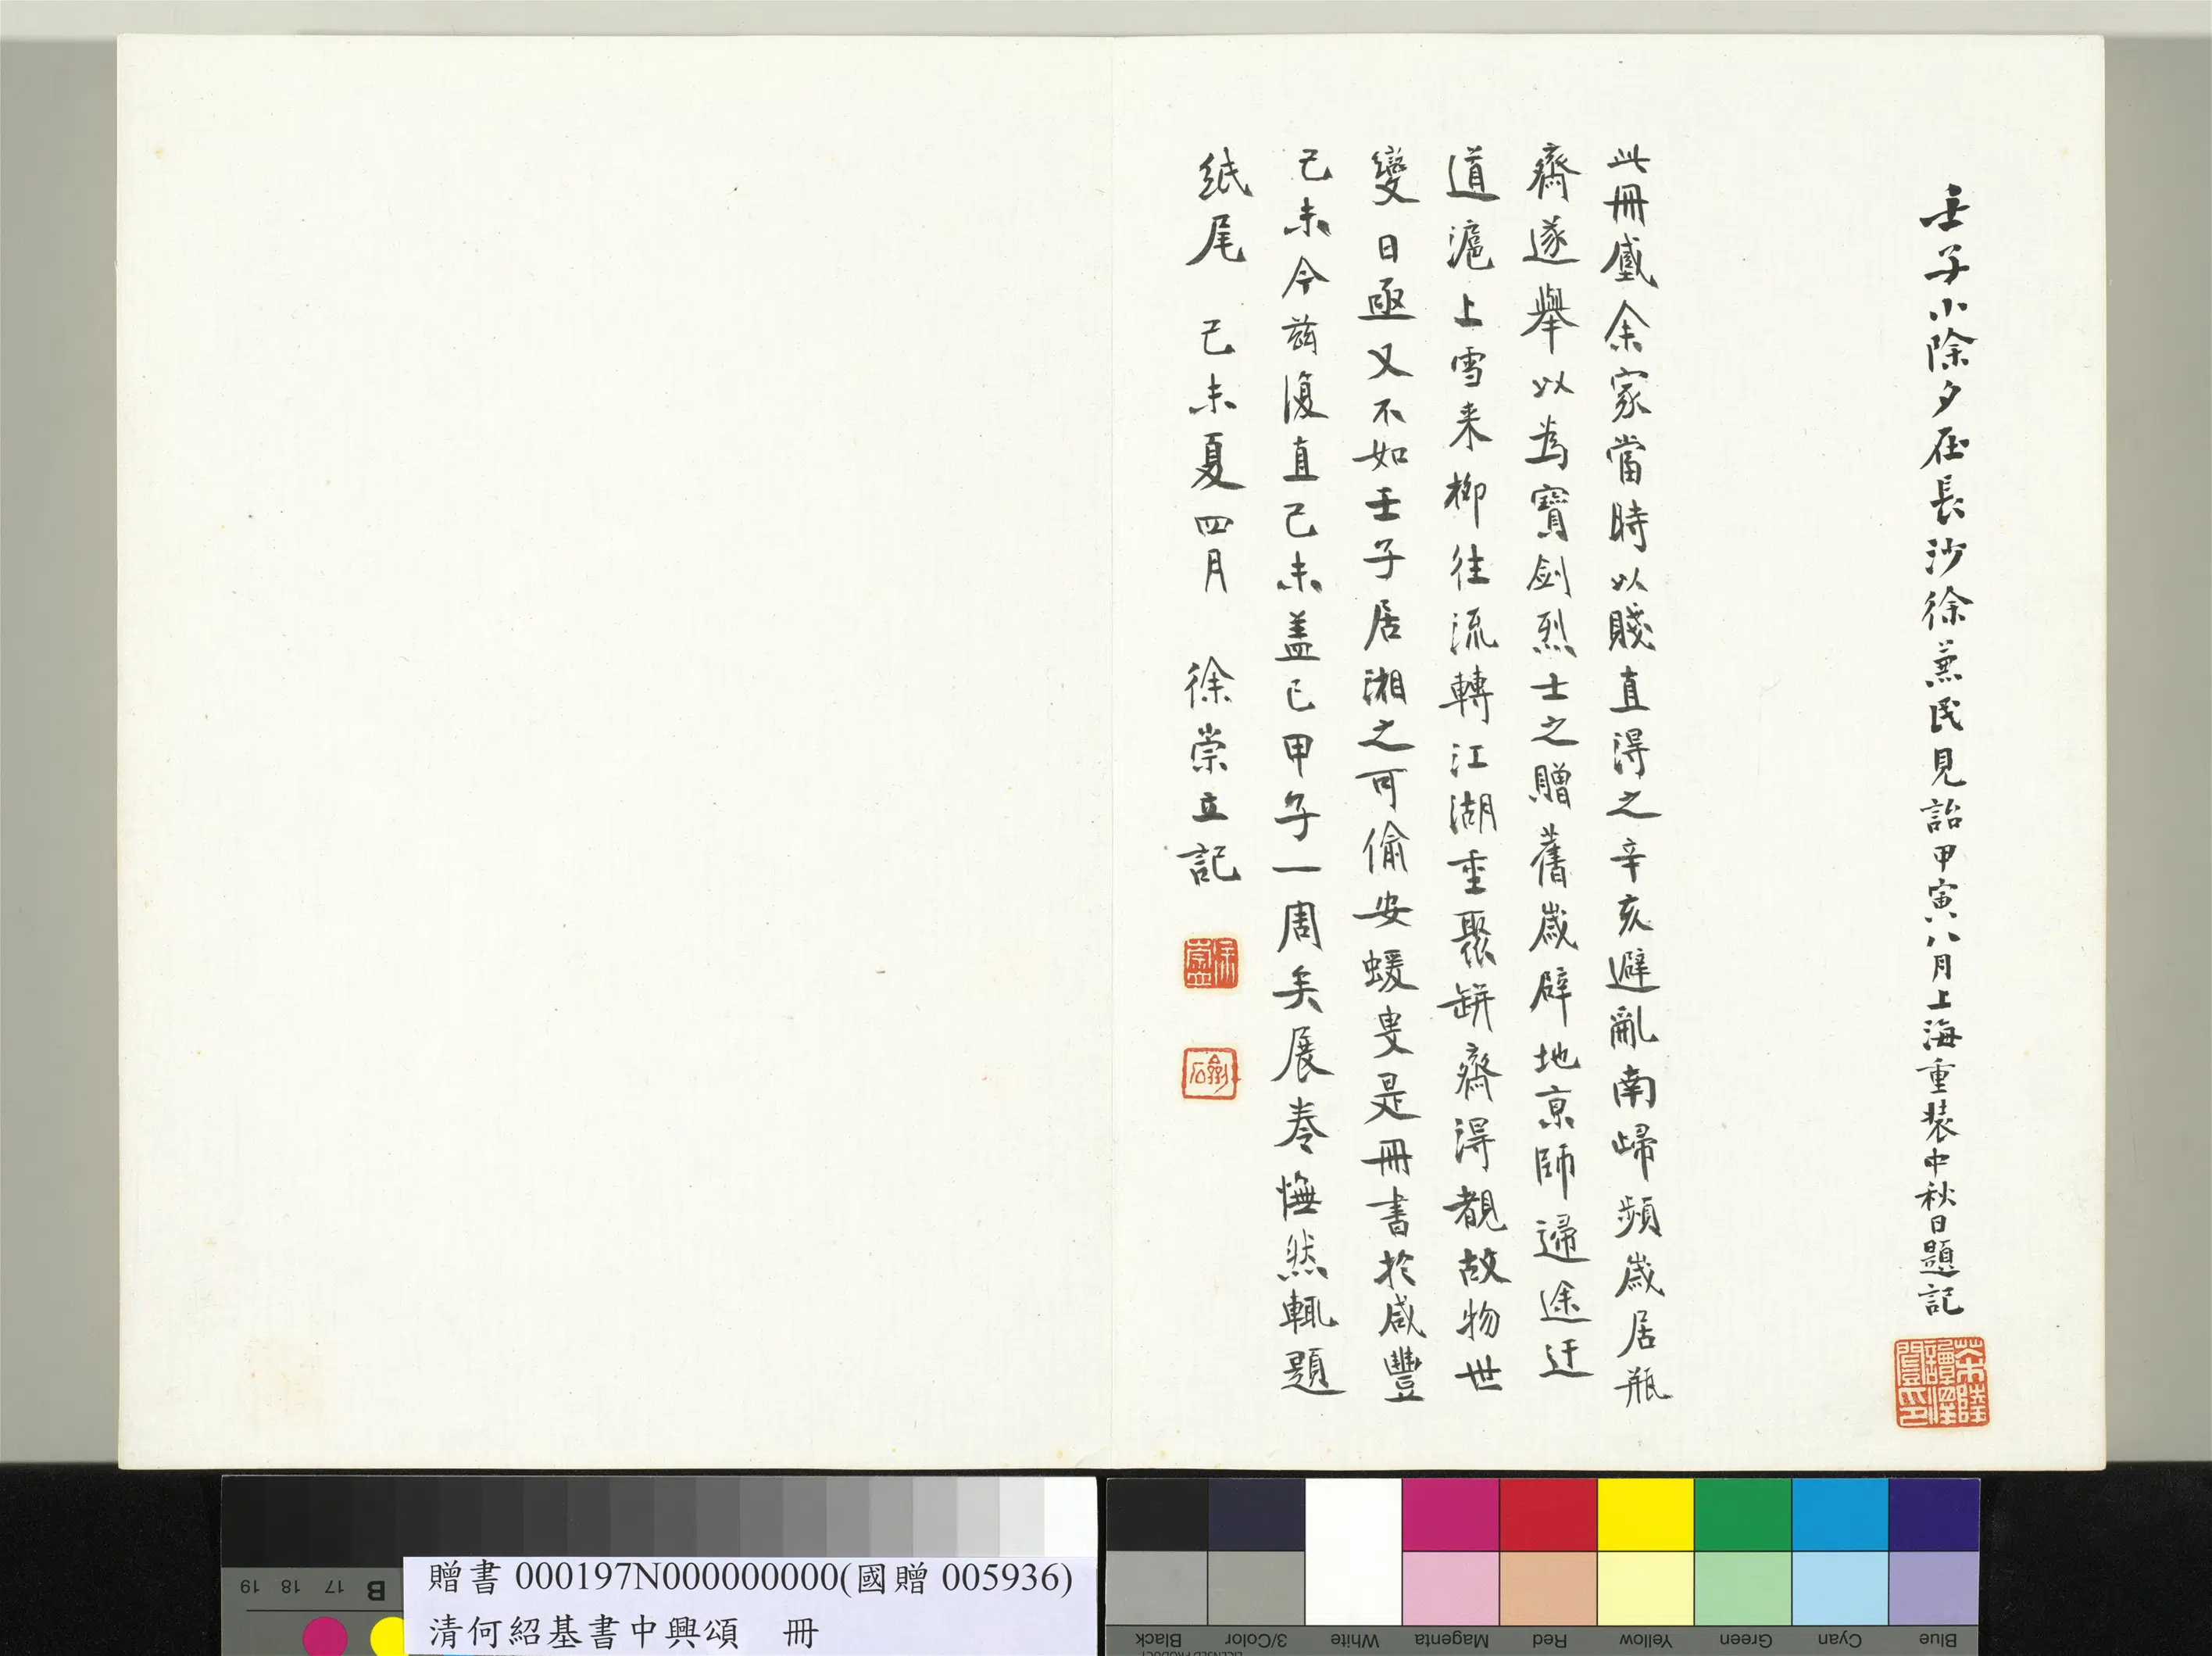 壬子小除夕在長沙徐蕪民見詒甲寅八月上海重裝中秋日題記
茶陵譚澤闓印
此冊盛余家當時以賤直得之辛亥避亂南歸頻歲居瓶
齋遂舉以為寶劍烈士之贈舊歲辟地京師歸途迂
道滬上雪來柳往流轉江湖重聚缾齋得覩故物世
變日亟又不如壬子居湘之可偷安蝯叟是冊書於咸豐
己未今茲復直己未蓋已甲子一周矣展卷憮然輒題
紙尾 己未夏四月 徐崇立記
徐崇立
贈書000197N000000000(國贈005936)
清何紹基書中興頌 冊
19 18 17 B
Black 3/Color White Magenta Red Yellow Green Cyan Blue